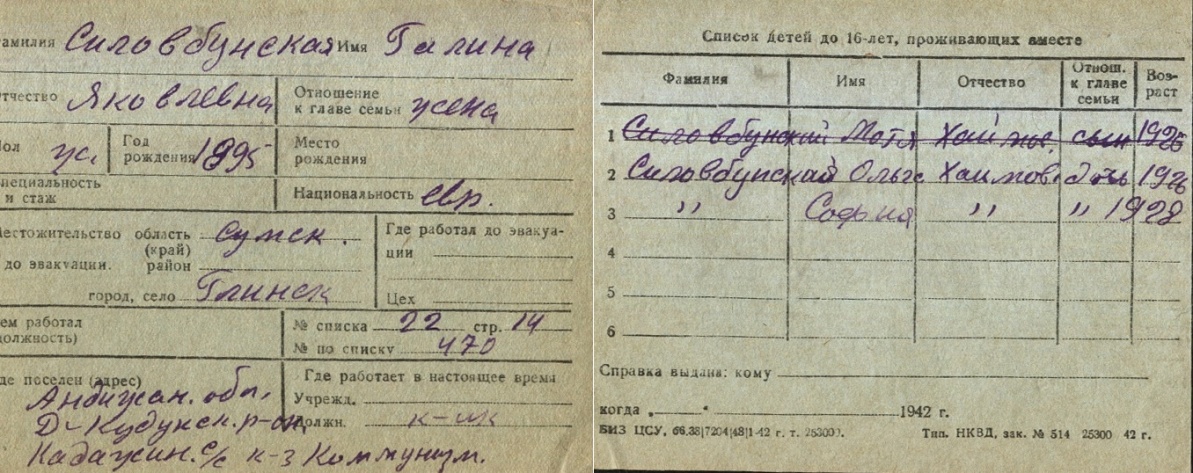 амилия Силовбунская Имя Галина
тчество Яковлевна Отношение к главе семьи жена
ол ж. Год рождения 1895 Место рождения
пециальность и стаж Национальность евр.
естожительство область Сумск. Где работал до эвакуа-
(край) ции
до эвакуации. район
город, село Глинск Цех
ем работал № списка 22 стр. 14
олжность) № по списку 470
де поселен (адрес) Где работает в настоящее время
Андижан. обл. Учрежд.
Д-Кудукск. р-он, олжн. к-ик
с/с к-з Коммунизм.
Список детей до 16-лет, проживающих вместе
Фамилия Имя Отчество Отнош. к главе семьи Воз-раст
1 Силовбунский Мотя сын 1926
2 Силовбунская Ольга Хаимов. дочь 1926
3 " София " " 1928
4
5
6
Справка выдана: кому
когда „ “ 1942 г.
БИЗ ЦСУ, 66.38|7204|48|1-42 г. т. 253000. Тип. НКВД, зак. № 514 25300 42 г.